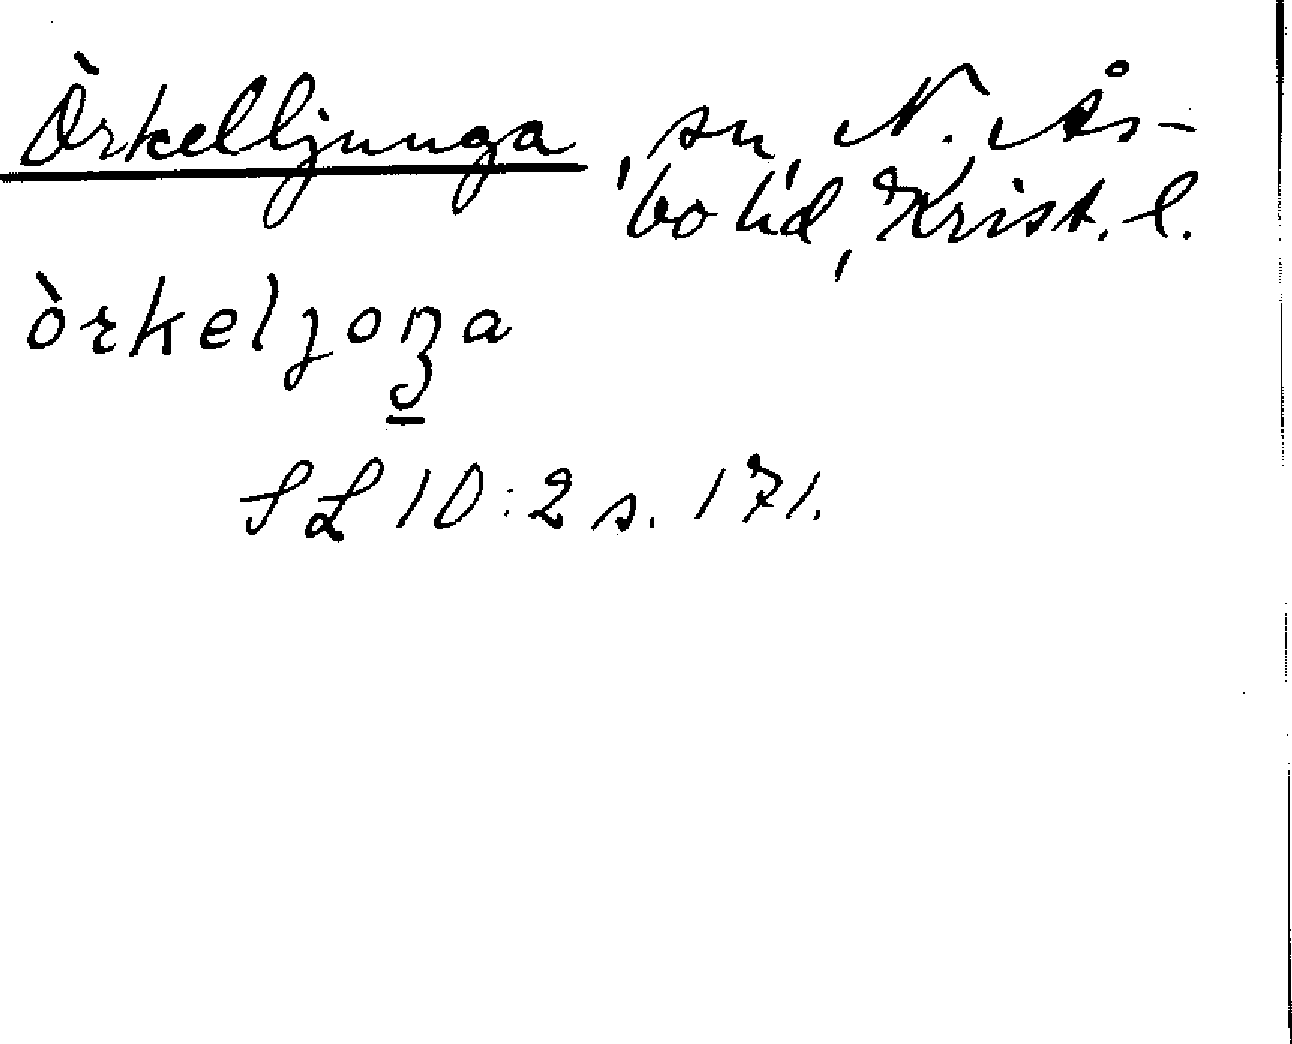 Òrkelljunga, sn, N. Ås-
bo hd, Krist. l.
òrkeljoŋa
SL 10:2 s. 171.